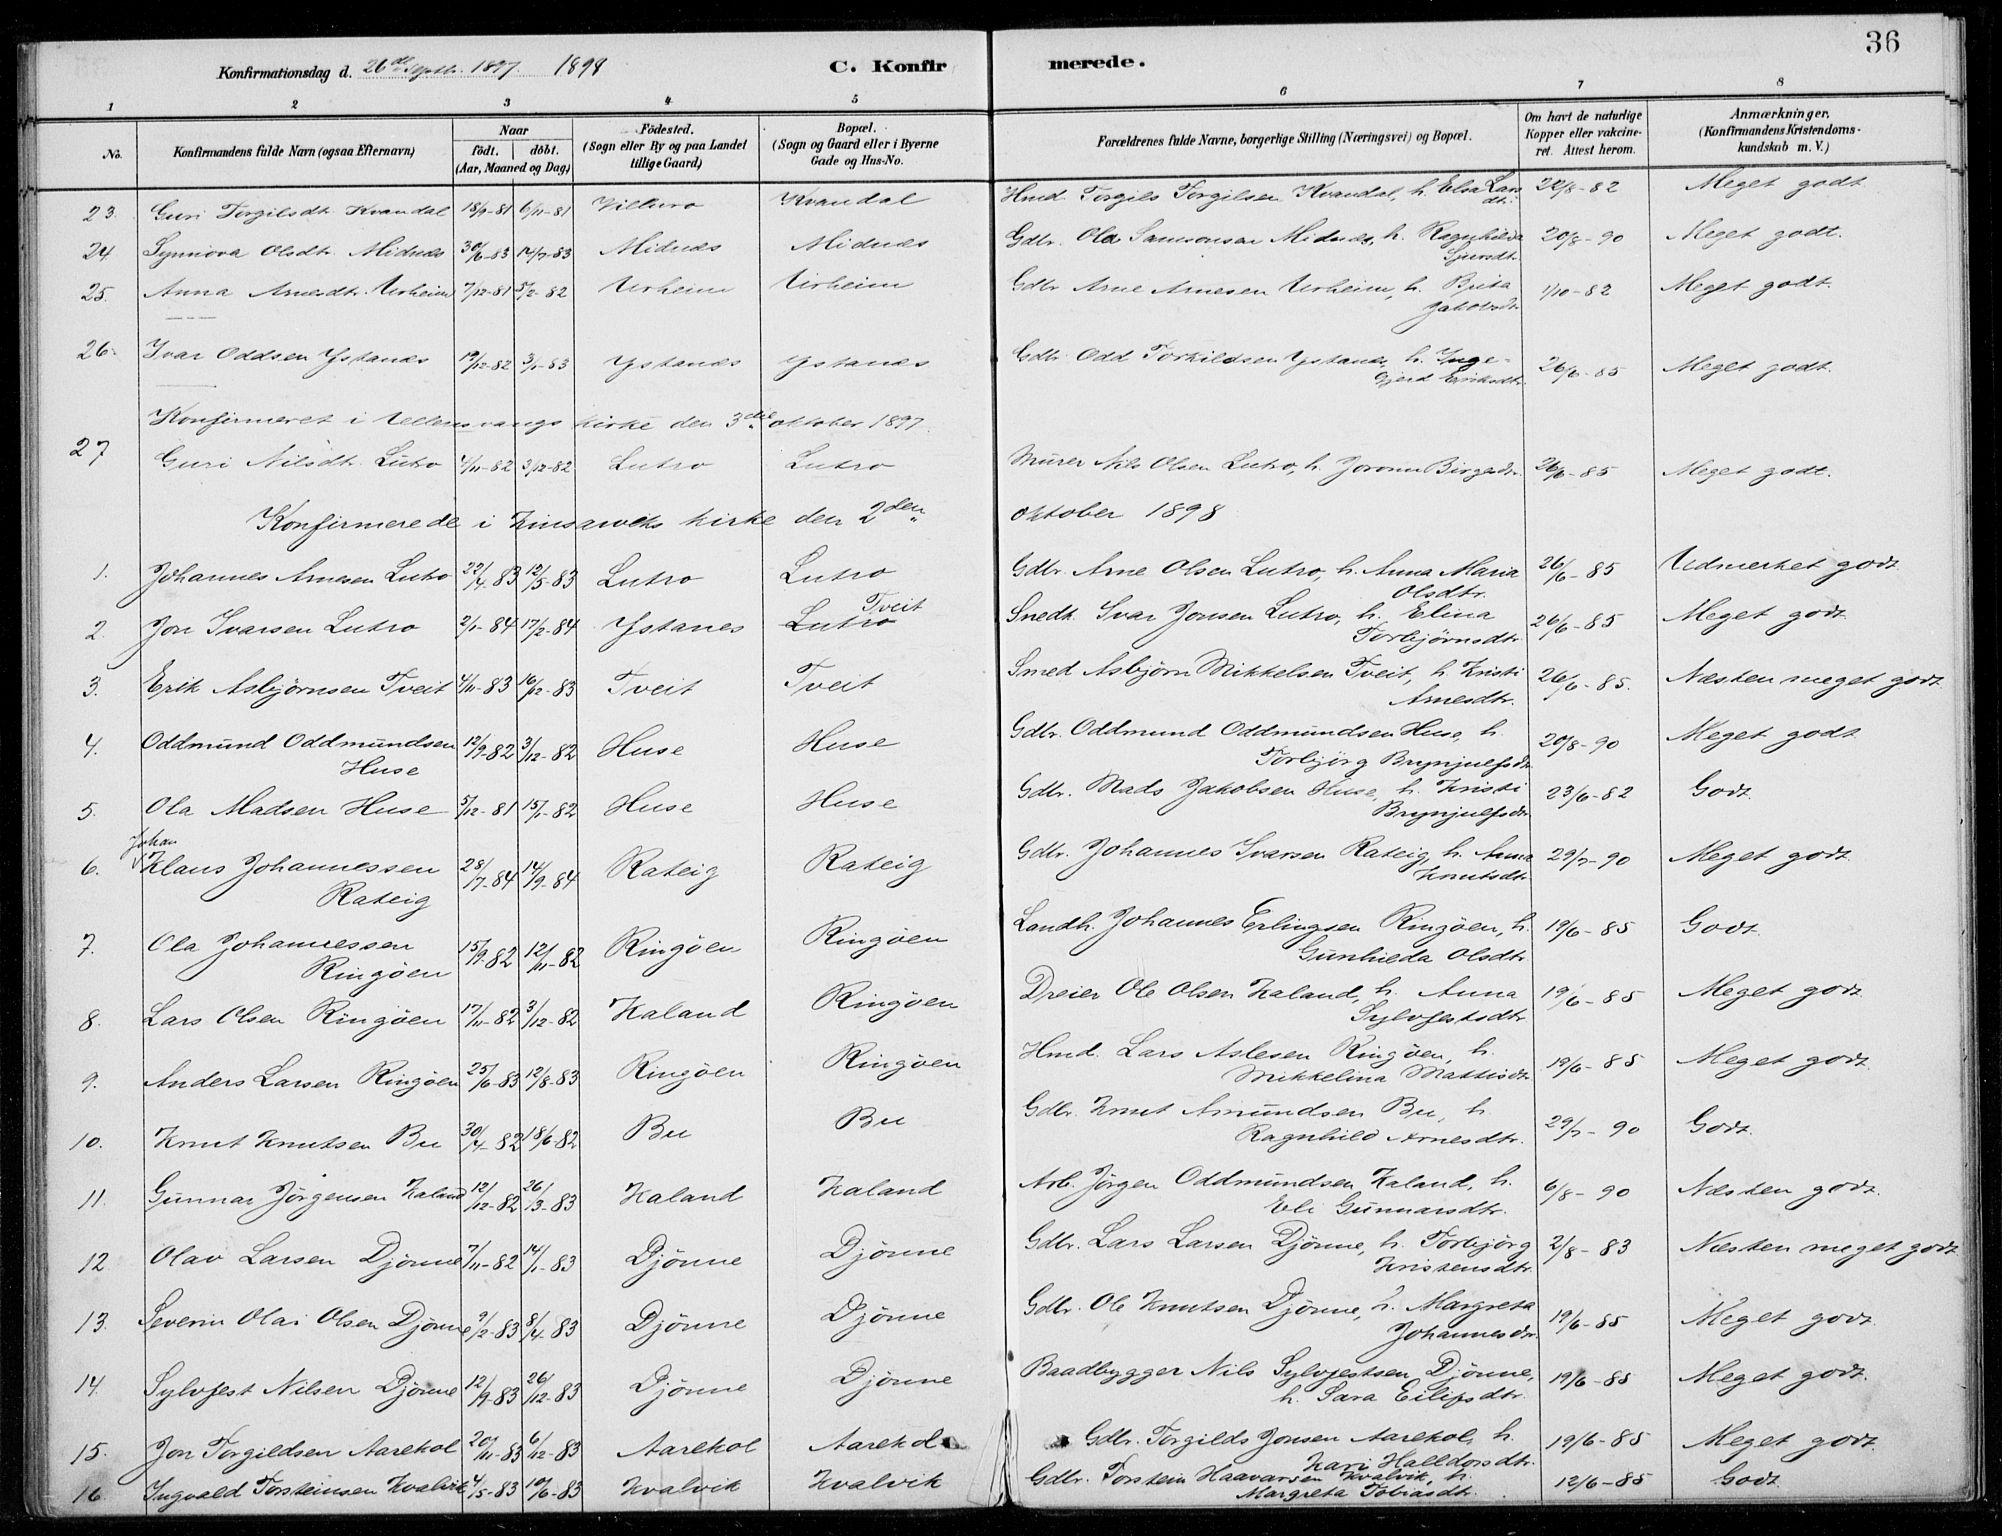 36
Konfirmationsdag d. 26de Septbr. 1897. 1898
C. Konfirmerede.
1 2 3 4 5 6 7 8
No. Konfirmandens fulde Navn (ogsaa Efternavn) Naar født. døbt. (Aar, Maaned og Dag) Fødested. (Sogn eller By og paa Landet tillige Gaard) Bopæl. (Sogn og Gaard eller i Byerne Gade og Hus-No. Forældrenes fulde Navne, borgerlige Stilling (Næringsvei) og Bopæl. Om havt de naturlige Kopper eller vakcineret. Attest herom. Anmærkninger. (Konfirmandens Kristendomskundskab m. V.)
23. Guri Torgilsdt. Kvandal 18/9-81 6/11-81 Kvandal Hmd. Torgils Torgilsen Kvandal, h. Elsa Larsdt. 22/8-82 Meget godt
24. Synnøva Olsdt. Midnæs 30/6-83 14/7-83 Midnæs Midnæs Gdbr. Ola Samsonsen Midnæs, h. Ragnhilda Sjursdtr. 20/8-90 Meget godt.
25. Anna Arnesdtr. Urheim 7/12-81 5/2-82 Urheim Urheim Gdbr Arne Arnesen Urheim, h. Brita Jakobsdtr 1/10-82 Meget godt.
26. Ivar Oddsen Ystanes 19/12-82 3/1-83 Ystanes Ystanes Gdbr. Odd Torkildsen Ystanes, h. Ingegjerd Eriksdtr. 26/6-85 Meget godt.
Konfirmeret i Ullensvangs kirke den 3die oktober 1897.
27 Guri Nilsdt. Lutro 4/11-82 3/12-82 Lutro Lutro Murer Nils Olsen Lutro, h. Joronn Birgersdtr. 26/6-85 Meget godt.
Konfirmerede i Kinsarviks kirke den 2den oktober 1898
1. Johannes Arnesen Lutro 22/4-83 12/5-83 Lutro Lutro Gdbr. Arne Olsen Lutro, h. Anna Maria Olsdtr. 26/6-85 Udmerket godt
2. Jon Ivarsen Lutro 2/1-84 17/2-84 Ystanes Lutro Tveit Snedk. Ivar Jonsen Lutro, h. Elina Torbjørnsdtr. 26/6-85 Meget godt
3. Erik Asbjørnsen Tveit 4/11-83 16/12-83 Tveit Tveit Smed Asbjørn Mikkelsen Tveit, h Kristi Arnesdtr. 26/6-85. Næsten meget godt
4. Oddmund Oddmundsen Huse 12/9-82 3/12-82 Huse Huse Gdbr. Oddmund Oddmundsen Huse, h. Torbjørg Brynjulfsdt. 20/8-90 Meget godt
5. Ola Madsen Huse 5/12-81 15/1-82 Huse Huse Gdbr. Mads Jakobsen Huse, h. Kristi Brynjulfsdt. 23/6-82 Godt.
6. Johan Klaus Johannessen Rateig 28/7-84 14/9-84 Rateig Rateig Gdbr. Johannes Ivarsen Rateig, h. Anna Knutsdtr. 29/7-90 Meget godt.
7. Ola Johannessen Ringøen 15/9-82 12/11-82 Ringøen Ringøen Landh. Johannes Erlingsen Ringøen, h. Gunhilda Olsdtr. 19/6-85 Godt.
8. Lars Olsen Ringøen 17/11-82 3/12-82 Kaland Ringøen Dreier Ole Olsen Kaland, h. Anna Sylvfestsdtr. 19/6-85 Meget godt
9. Anders Larsen Ringøen 25/6-83 12/8-83 Ringøen Ringøen Hmd. Lars Aslesen Ringøen, h. Mikkelina Mattisdt. 19/6-85 Meget godt.
10. Knut Knutsen Bu 30/4-82 18/6-82 Bu Bu Gdbr. Knut Amundsen Bu, h. Ragnhild Arnesdtr. 29/7-90 Godt.
11. Gunnar Jørgensen Kaland 12/12-82 26/3-83 Kaland Kaland Arb. Jørgen Oddmundsen Kaland, h. Eli Gunnarsdtr. 6/8-90 Næsten godt.
12 Olav Larsen Djønne 7/11-82 14/1-83 Djønne Djønne Gdbr. Lars Larsen Djønne, h. Torbjørg Kristensdtr. 2/8-83 Næsten meget godt
13. Severin Olai Olsen Djønne 9/2-83 8/4-83 Djønne Djønne Gdbr. Ole Knutsen Djønne, h. Margreta Johannesdr. 19/6-85 Meget godt
14. Sylvfest Nilsen Djønne 12/9-83 26/12-83 Djønne Djønne Baadbygger Nils Sylvfestsen Djønne, h. Sara Eilifsdtr. 19/6-85 Meget godt.
15. Jon Torgildsen Aarekol 20/11-83 6/12-83 Aarekol Aarekol Gdbr. Torgilds Jonsen Aarekol, h. Kari Halldorsdtr. 19/6-85 Meget godt
16 Ingvald Torsteinsen Kvalvik 4/5-83 10/6-83 Kvalvik Kvalvik Gdbr. Torstein Haavarsen Kvalvik, h. Margreta Tobiasdtr. 12/6-85 Godt